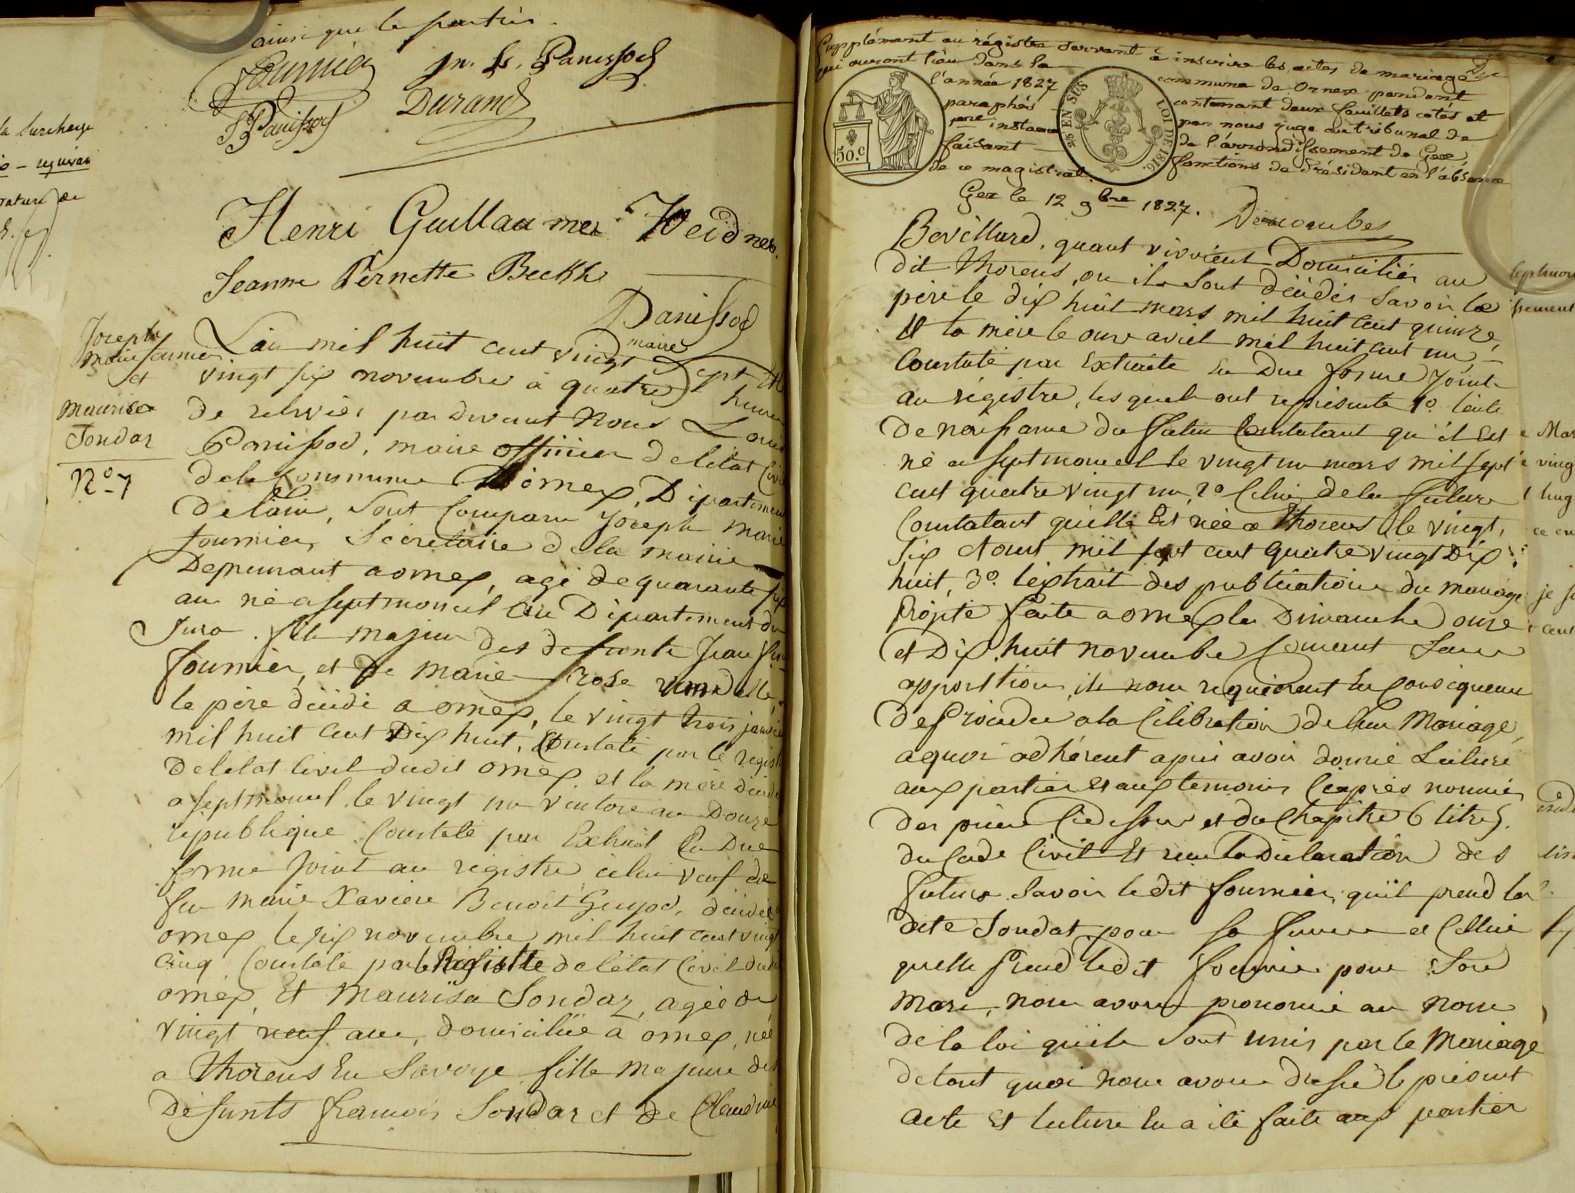 ainsi que les parties.
Fournier Jn. Ls. Panissod
F Panissod Durand
Henri Guillaume Weidner.
Jeanne Pernette Beckh
Panissod
maire
Joseph
marie fournier
et
maurisa
Sondaz
N° 7
L'an mil huit cent vingt sept et le
vingt six novembre à quatre heures
de relevée, par devant Nous Louis
Panissod, maire officier de l'état Civil
de la Commune d'ornex, Département
de l'ain, Sont Comparu Joseph Marie
fournier, Sécretaire de la mairie
Demeurant a ornex, agé de quarante six
ans né a septmoncel Département du
Jura, fils majeur des defunts Jean
fournier, et de marie rose
le père décédé à ornex, le vingt trois janvier
mil huit cent Dix huit, Constaté par le registre
De l'etat Civil dudit ornex et la mère décédée
a septmoncel le vingt un ventose an Douze
république Constaté par Extrait En Due
forme Joint au registre celui veuf de
feu marie Xaviere Benoit Guyod, décédée
ornex le six novembre mil huit cent vingt
Cinq, Constaté par le Registre de l'état Civil dudit
ornex, Et Maurisa Sondaz, agée de
vingt neuf ans, domiciliée à ornex, née
a Thorens En Savoye fille majeure des
Défunts francois Sondaz et de Claudine
Supplément au régistre servant à inscrire les actes de mariage
qui auront lieu dans la commune de Ornex pendant
l'année 1827 contenant deux feuillets cotés et
paraphés par nous juge au tribunal de
1ere instance de l'arrondissement de Gex,
faisant fonctions de Président en l'absence
de ce magistrat.
50.c
EN SUS
LOI DE 1816.
Gex le 12 9bre 1827.
Bovillard, quant vivoient Domiciliés au
dit Thorens, ou ils Sont décédés Savoir le
père le dix huit mars mil huit cent quinze,
Et la mère le onze avril mil huit cent un,
Constaté par Extraits En Due forme Joints
au régistre, lesquels ont représenté 1° l'acte
De naissance du futur Constatant qu'il Est
né a septmoncel le vingt un mars mil sept
cent quatre vingt un, 2° Celui de la future
Constatant qu'elle Est née a Thorens le vingt
six Aout mil sept cent quatre vingt Dix
huit, 3° l'extrait des publications du mariage
Projeté faite a ornex les Dimanche onze
et Dix huit novembre Courant Sans
opposition, ils nous requièrent En Conséquence
De Procéder a la Célébration de leur Mariage,
a quoi adhérent après avoir donné Lecture
aux parties et aux temoins Ci après nommés
des pièces Ci dessus et du Chapitre 6 titre 5.
du Code Civil Et reçu la Déclaration des
futurs Savoir le dit fournier, qu'il prend la
dite Sondaz pour sa femme et Celle ci
qu'elle Prend ledit fournier pour Son
mari, nous avons prononcé au nom
de la loi qu'ils Sont unis par le Mariage
de tout quoi nous avons dressé le présent
acte Et lecture En a été faite aux parties